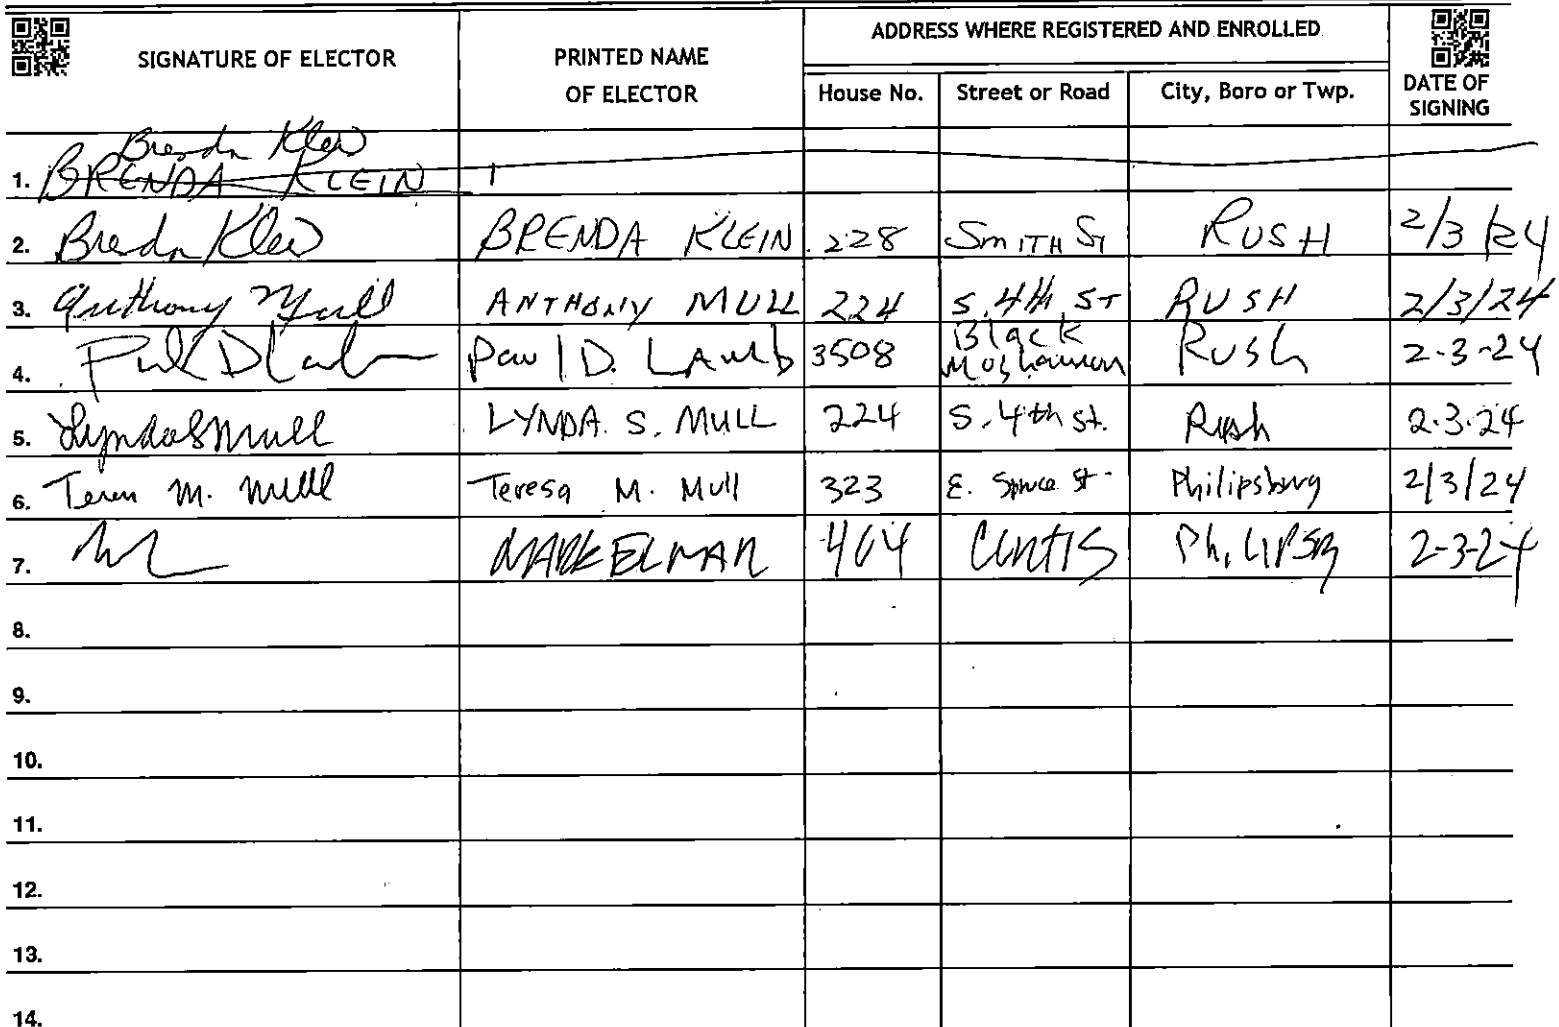 SIGNATURE OF ELECTOR PRINTED NAME OF ELECTOR ADDRESS WHERE REGISTERED AND ENROLLED DATE OF SIGNING
House No. Street or Road City, Boro or Twp.
Brenda Klein
1. BRENDA KLEIN
2. Brenda Klein BRENDA KLEIN 228 SMITH ST RUSH 2/3/24
3. Anthony Mull ANTHONY MULL 224 S. 4th ST RUSH 2/3/24
4. Paul D Lamb Paul D. Lamb 3508 Black Moshannon Rush 2-3-24
5. Lynda S Mull LYNDA. S. MULL 224 S. 4th St. Rush 2.3.24
6. Teresa M. Mull Teresa M. Mull 323 E. Spruce St. Philipsburg 2/3/24
7. MARK ELMAN 464 CURTIS 2-3-24
8.
9.
10.
11.
12.
13.
14.